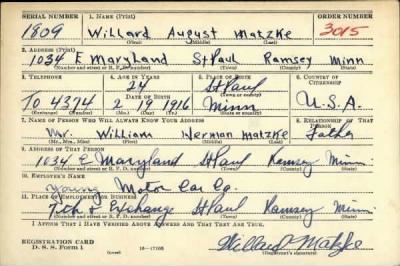 SERIAL NUMBER 1. NAME (Print) ORDER NUMBER
1809 Willard August Matzke 3015
(First) (Middle) (Last)
2. ADDRESS (Print)
1034 E Maryland St Paul Ramsey Minn
(Number and street or R. F. D. number) (Town) (County) (State)
3. TELEPHONE 4. AGE IN YEARS 5. PLACE OF BIRTH 6. COUNTRY OF CITIZENSHIP
24 St Paul
TO 4374 DATE OF BIRTH (Town or county) U.S.A.
2 19 1916 Minn
(Exchange) (Number) (Mo.) (Day) (Yr.) (State or country)
7. NAME OF PERSON WHO WILL ALWAYS KNOW YOUR ADDRESS 8. RELATIONSHIP OF THAT PERSON
Mr. William Herman Matzke Father
(Mr., Mrs., Miss) (First) (Middle) (Last)
9. ADDRESS OF THAT PERSON
1034 E Maryland St Paul Ramsey Minn.
(Number and street or R. F. D. number) (Town) (County) (State)
10. EMPLOYER'S NAME
Young Motor Car Co.
11. PLACE OF EMPLOYMENT OR BUSINESS
7th & Exchange St Paul Ramsey Minn.
(Number and street or R. F. D. number) (Town) (County) (State)
I AFFIRM THAT I HAVE VERIFIED ABOVE ANSWERS AND THAT THEY ARE TRUE.
REGISTRATION CARD
D. S. S. FORM 1 16—17105 Willard Matzke
(Registrant's signature)